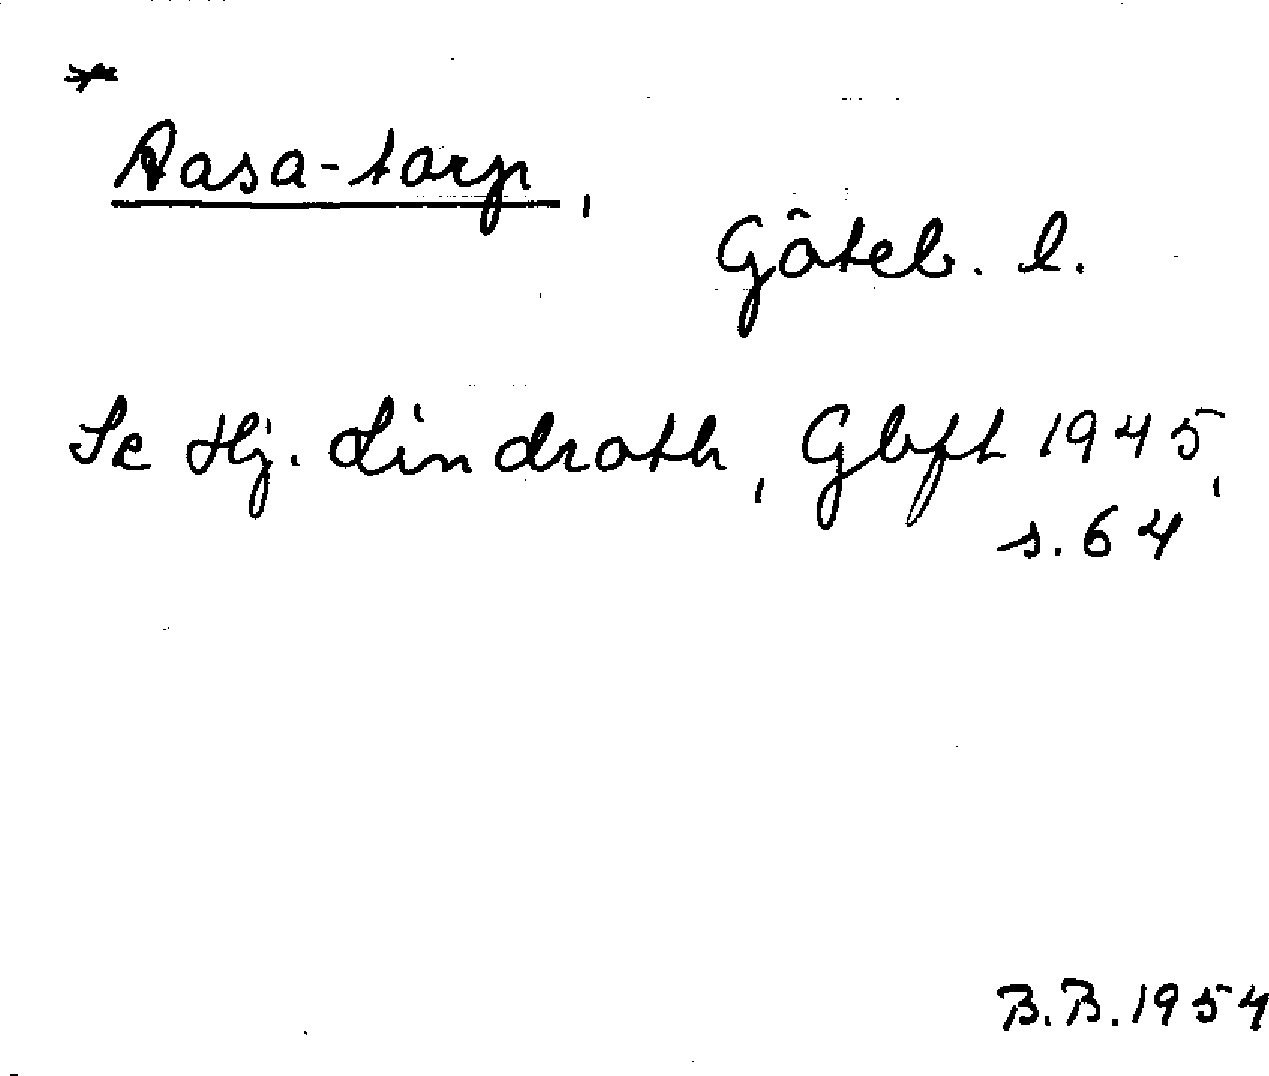 *
Aasa-torp,
Göteb. l.
Se Hj. Lindroth, Gbgft 1945,
s. 64
B.B. 1954